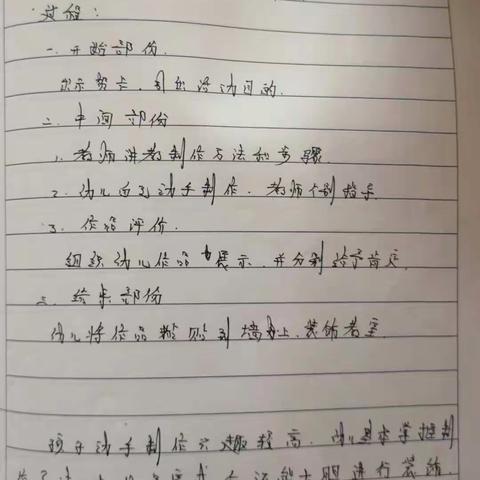 过程:
一、开始部份.
出示贺卡、引出活动目的.
二、中间部份
1、教师讲老制作方法和步骤.
2、幼儿自己动手制作. 教师个别指导
3、作品评价.
组织幼儿作品展示、并分别给予肯定.
三、结束部份
幼儿将作品粘贴到墙面上、装饰教室.
孩子动手制作兴趣较高、幼儿基本掌握制
大胆进行装饰.